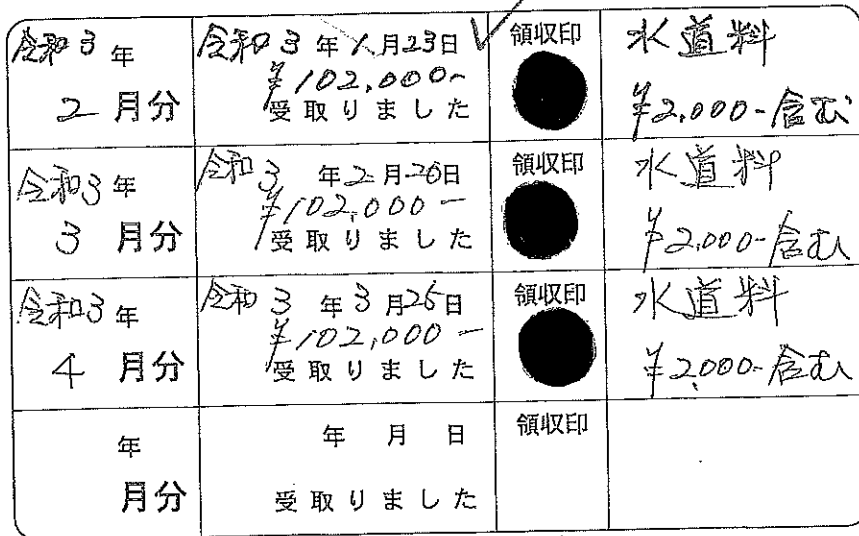 令和3年
2月分
令和3年1月23日
¥102,000-
受取りました
領収印
水道料
¥2,000-含む
令和3年
3月分
令和3年2月26日
¥102,000-
受取りました
領収印
水道料
¥2,000-含む
令和3年
4月分
令和3年3月25日
¥102,000-
受取りました
領収印
水道料
¥2,000-含む
年
月分
年月日
受取りました
領収印